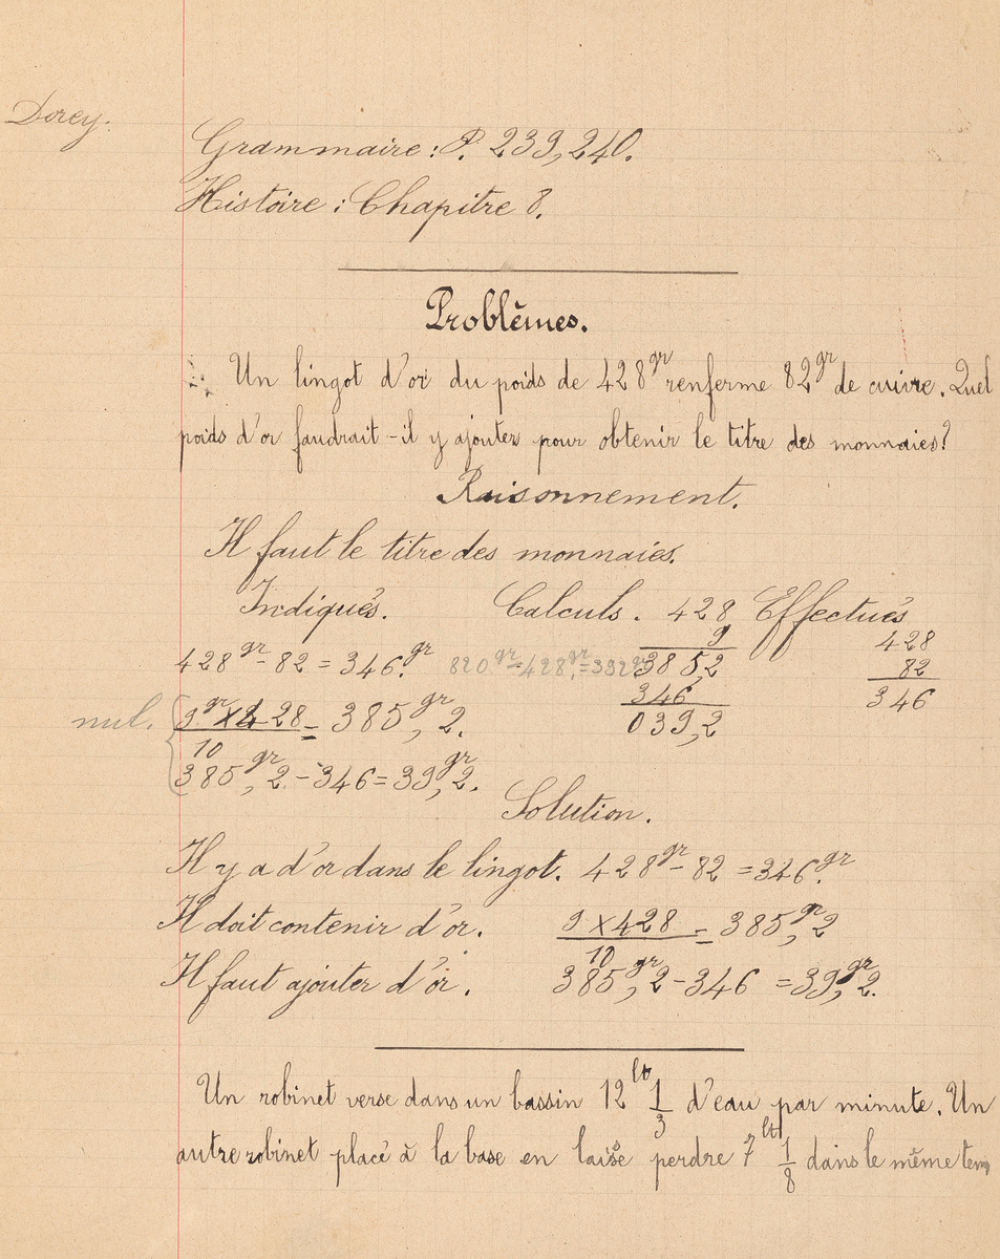 Dorey.
Grammaire : P. 239, 240.
Histoire : Chapitre 8.
Problèmes.
Un lingot d'or du poids de 428gr renferme 82gr de cuivre. Quel
poids d'or faudrait-il y ajouter pour obtenir le titre des monnaies?
Raisonnement.
Il faut le titre des monnaies.
Indiqués. Calculs. Effectués
428gr - 82 = 346gr. 820gr - 428gr = 392gr
nul. 9gr x 428 / 10 = 385gr,2.
385gr,2 - 346 = 39gr,2.
428
9
385,2
346
039,2
428
82
346
Solution.
Il y a d'or dans le lingot. 428gr - 82 = 346gr.
Il doit contenir d'or. 9 x 428 / 10 = 385gr,2
Il faut ajouter d'or. 385gr,2 - 346 = 39gr,2.
Un robinet verse dans un bassin 12lt 1/3 d'eau par minute. Un
autre robinet placé à la base en laisse perdre 7lt 1/8 dans le même tem